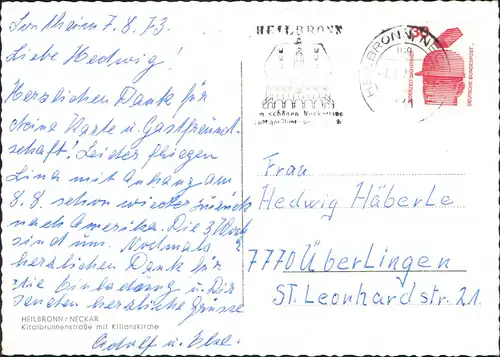 Sontheim 7.8.73.
Liebe Hedwig!
Herzlichen Dank für
deine Karte u. Gastfreund-
schaft! Leider fliegen
Lina mit Anhang am
8.8. schon wieder zurück
nach Amerika. Die 3 Woch.
sind um. Nochmals
herzlichen Dank für
die Einladung u. Dir
senden herzliche Grüsse
Adolf u. Else.
HEILBRONN / NECKAR
Kirchbrunnenstraße mit Kilianskirche
HEILBRONN
m schönen Neckartal
HEILBRONN, NECK
30
DEUTSCHE BUNDESPOST
Frau
Hedwig Häberle
7770 Überlingen
St. Leonhardstr. 21.